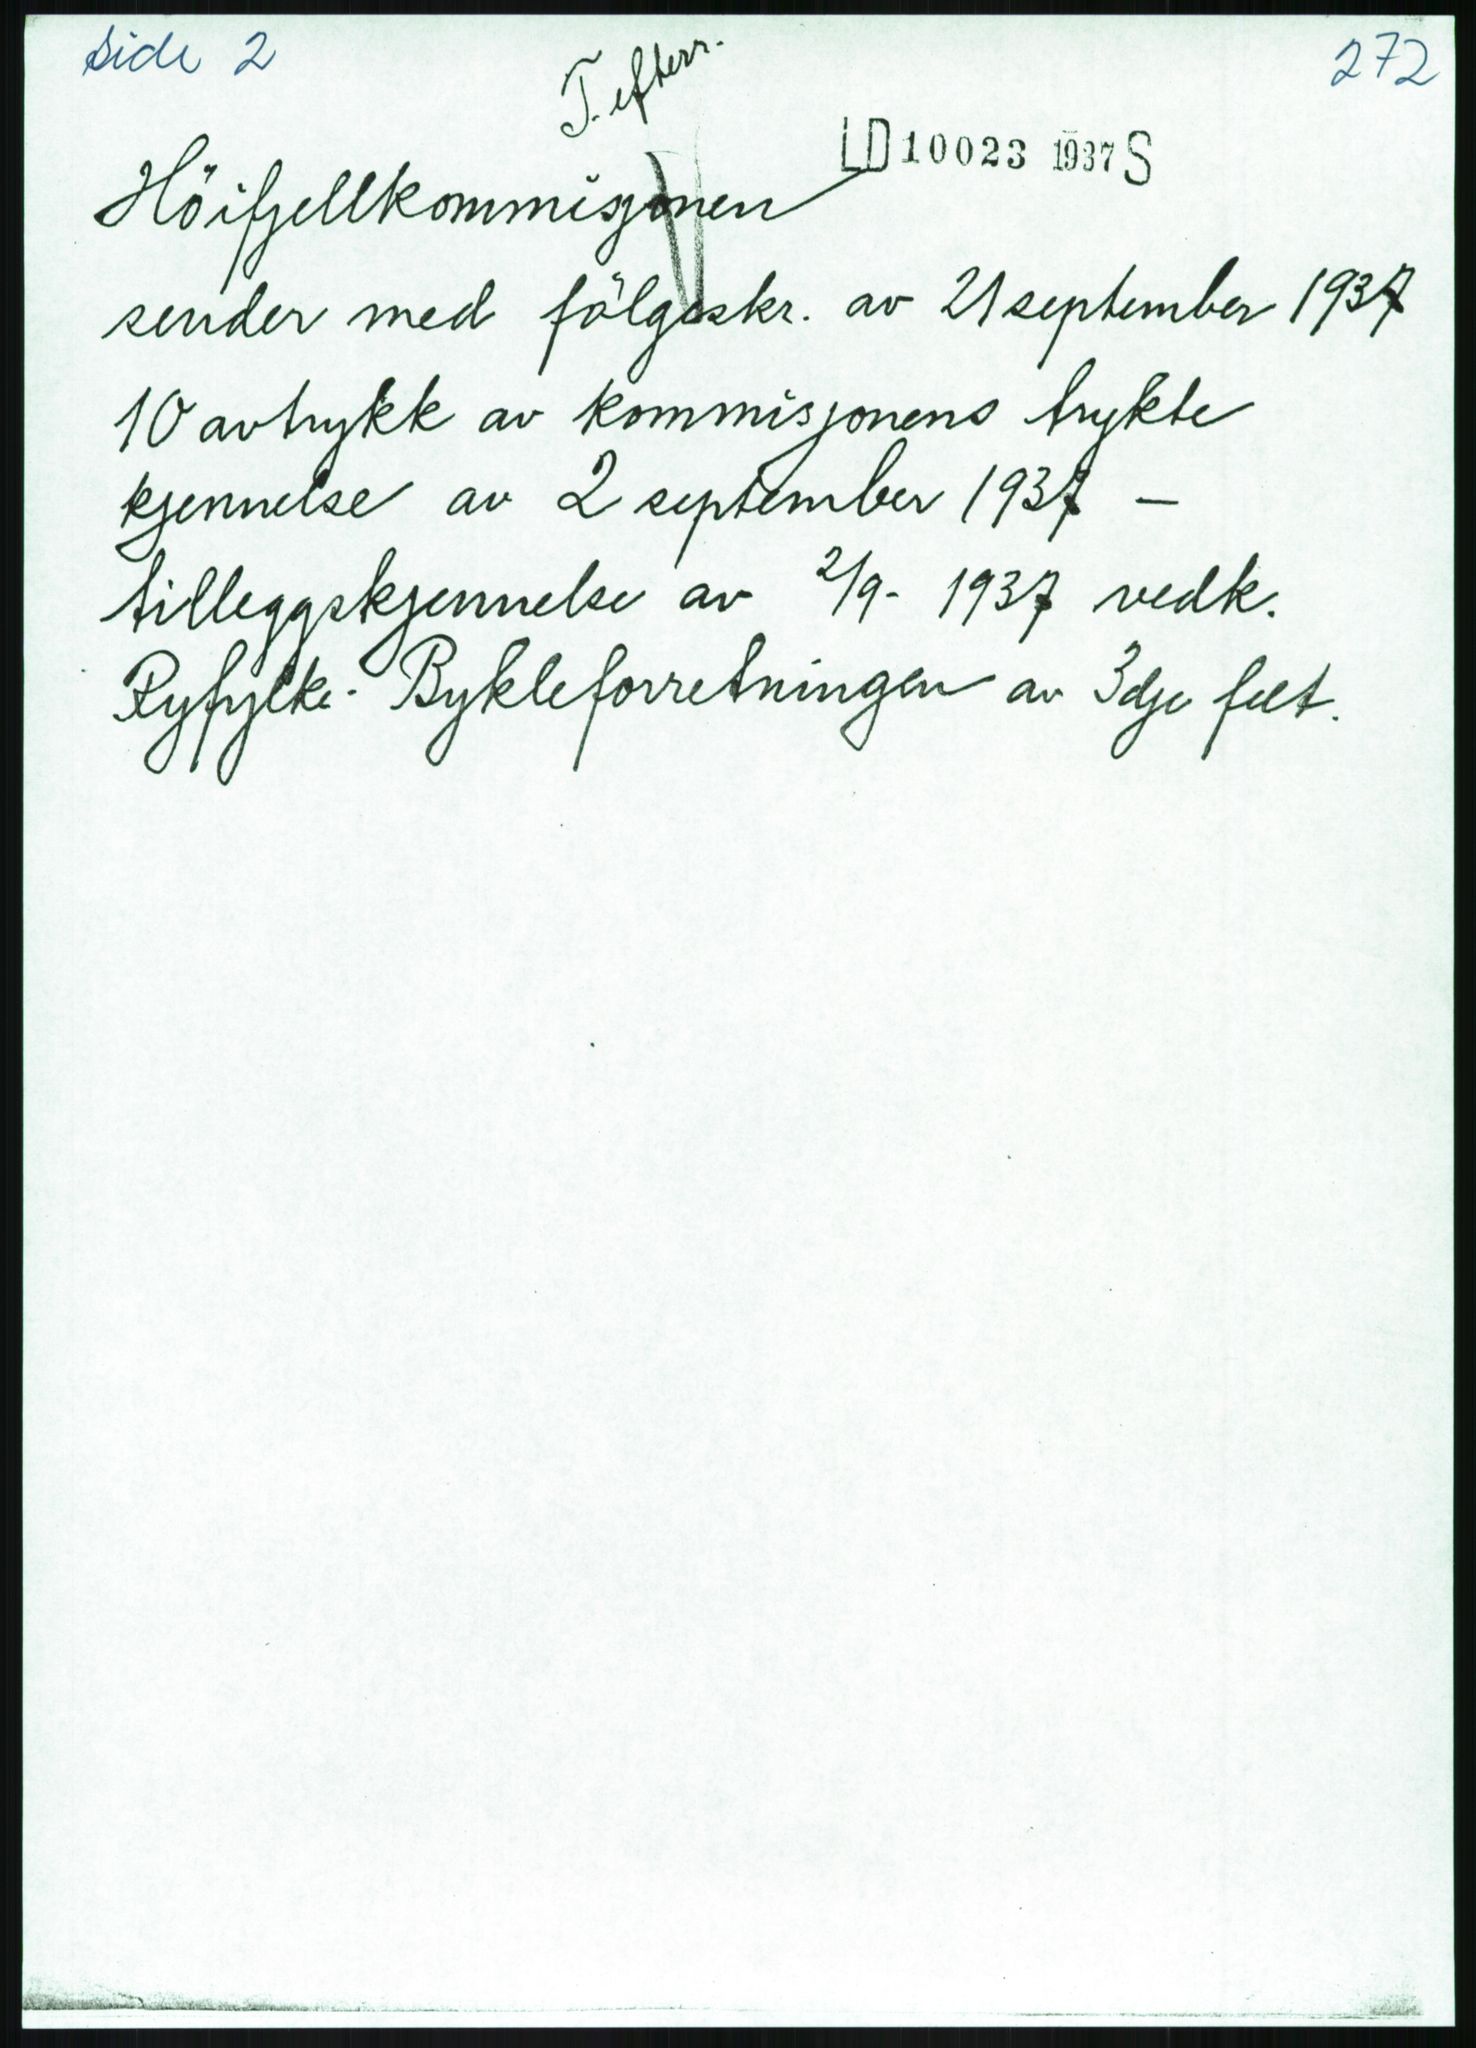 side 2
272
T. efterr.
LD 10023 1937 S
Höifjellkommisjonen
sender med fölgeskr. av 21 september 1937
10 avtrykk av kommisjonens trykte
kjennelse av 2 september 1937 —
tilleggskjennelse av 2/9- 1937 vedk.
Ryfylke- Bykleforretningen av 3dje felt.